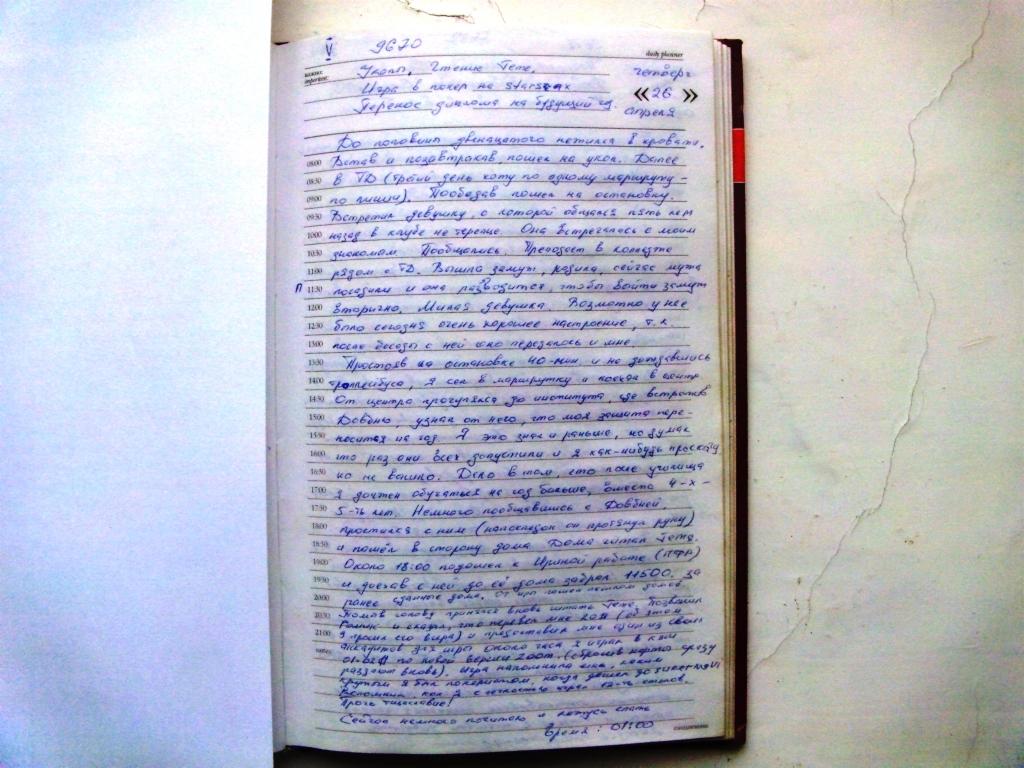 V 9670
daily planner
важно:
important:
Уколы. Чтение Гете.
четверг
Игра в покер на
« 26 »
Перенос диплома на будущий год
апреля
До половины двенадцатого нежился в кровати.
08:00 Встав и позавтракав, пошел на укол. Далее
08:30 в ТД (третий день хожу по одному маршруту -
09:00 по пицци). Пообедав пошел на остановку.
09:30 Встретил девушку, с которой общался пять лет
10:00 назад в клубе на территории. Она встречалась с моим
10:30 знакомым. Пообщались. Преподает в колледже
11:00 рядом с ТД. Вышла замуж, родила, сейчас мужа
П 11:30 посадили и она разводится, чтобы выйти замуж
12:00 вторично. Милая девушка. Возможно у нее
12:30 было сегодня очень хорошее настроение, т.к.
13:00 после беседы с ней оно передалось и мне.
13:30 Простояв на остановке 40 мин. и не дождавшись
14:00 троллейбуса, я сел в маршрутку и поехал в центр.
14:30 От центра прогулялся до института, где встретив
15:00 Довбню, узнал от него, что моя защита пере-
15:30 носится на год. Я это знал и раньше, но думал
16:00 что раз они всех допустили и я как-нибудь проскочу
16:30 но не вышло. Дело в том, что после училища
17:00 я должен обучаться на год больше, вместо 4-х -
17:30 5-ть лет. Немного пообщавшись с Довбней,
18:00 простился с ним (напоследок он протянул руку)
18:30 и пошёл в сторону дома. Дома читал Гете.
19:00 Около 18:00 подошел к Ириной работе (ПФР)
19:30 и доехав с ней до её дома забрал 11500 за
20:00 ранее сданные дома. От иры пошел пешком домой.
20:30 Помыв голову принялся вновь читать Гете. Позвонил
и сказал, что перевел мне 20$ (об этом
21:00 я просил его вчера) и предоставил мне один из своих
аккаунтов для игры. Около часа я играл в кэш
01-02$ по новой версии Zoom (сбросив карты сразу
раздают вновь). Игра напомнила мне, каким
крупным я был покеристом, когда дошел до
Вспомнил, как я с легкостью через
Прочь тщеславие!
Сейчас немного почитаю и ложусь спать
Время: 01:00